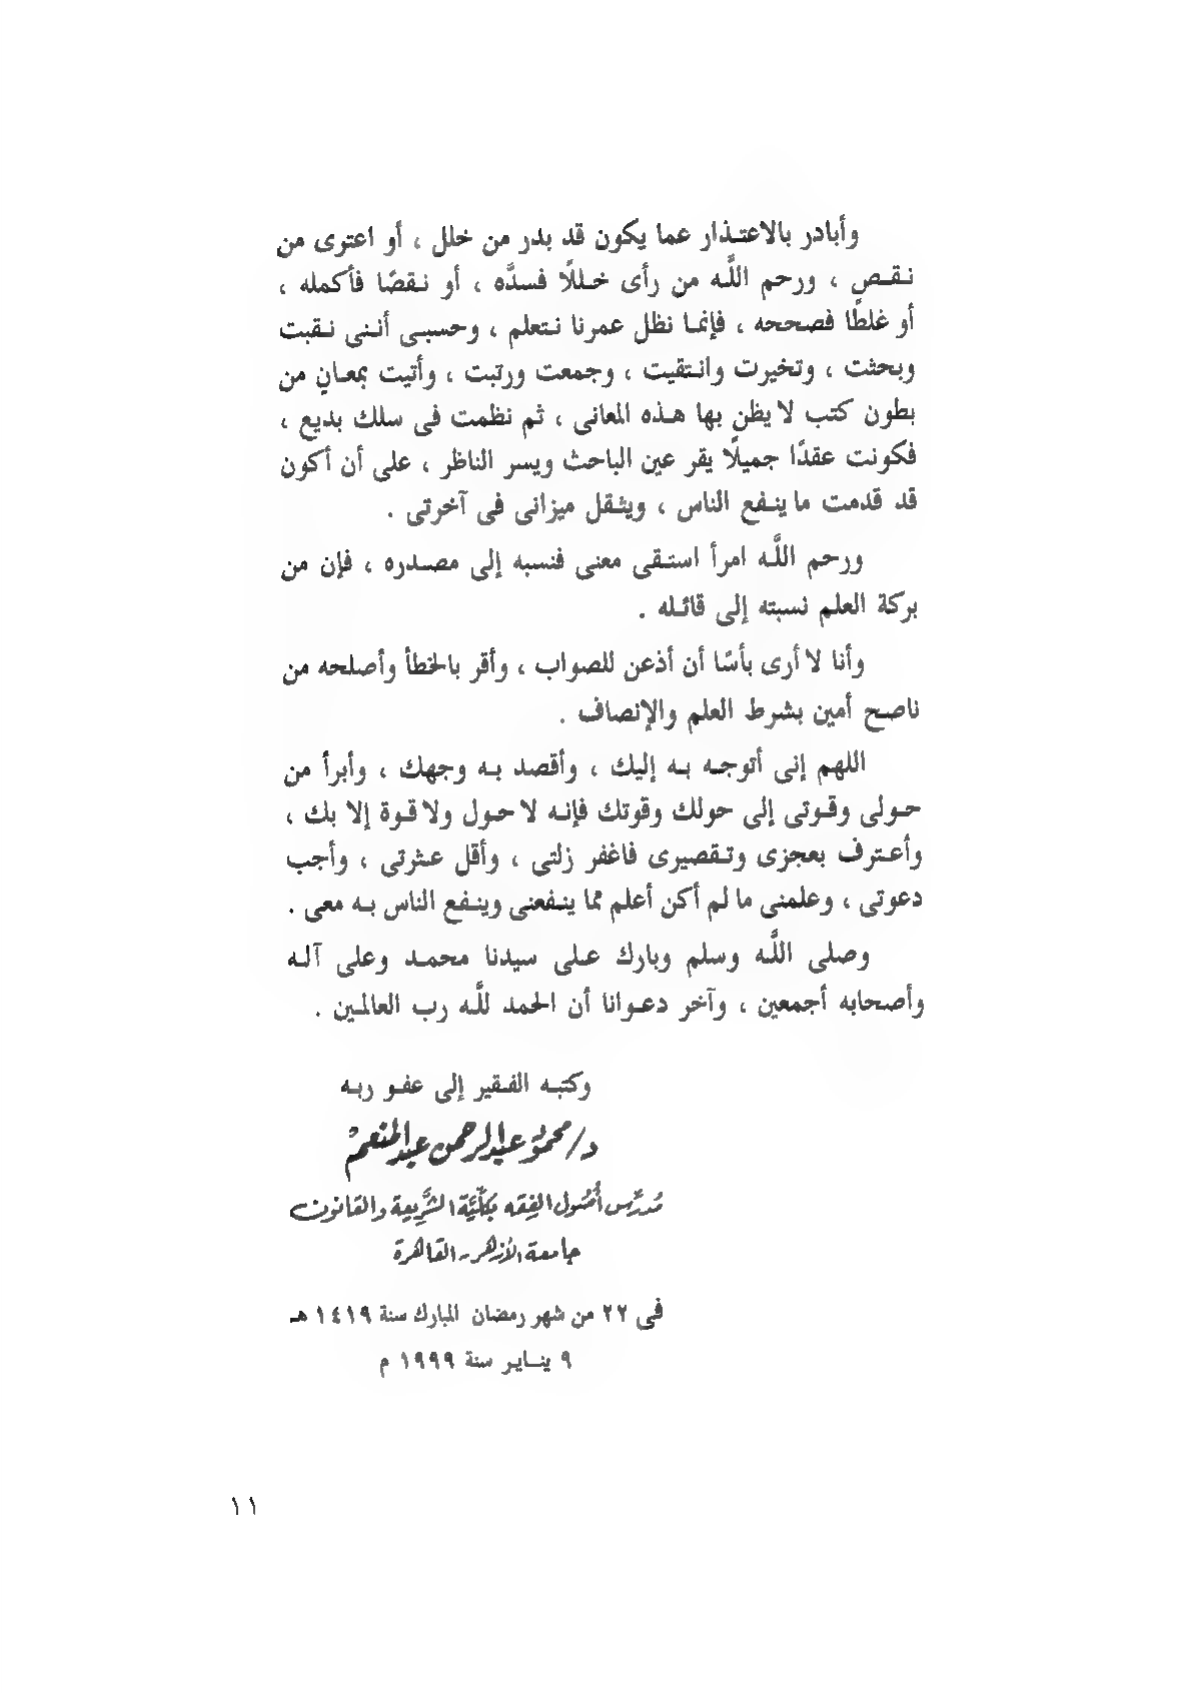 وأبادر بالاعتـذار عما يكون قد بدر من خلل ، أو اعترى من
نـقـصٍ ، ورحم اللَّه من رأى خـللًا فسدَّه ، أو نـقصًا فأكمله ،
أو غلطًا فصححه ، فإنمـا نظل عمرنا نـتعلم ، وحسبـى أنـنى نـقبت
وبحثت ، وتخيرت وانـتقيت ، وجمعت ورتبت ، وأتيت بمعـانٍ من
بطون كتب لا يظن بها هـذه المعانى ، ثم نظمت فى سلك بديع ،
فكونت عقدًا جميلًا يقر عين الباحث ويسر الناظر ، على أن أكون
قد قدمت ما ينـفع الناس ، ويثـقل ميزانى فى آخرتى .
ورحم اللَّـه امرأ استـقى معنى فنسبه إلى مصـدره ، فإن من
بركة العلم نسبته إلى قائـله .
وأنا لا أرى بأسًا أن أذعن للصواب ، وأقر بالخطأ وأصلحه من
ناصـح أمين بشرط العلم والإنصاف .
اللهم إنى أتوجـه بـه إليك ، وأقصد بـه وجهك ، وأبرأ من
حـولى وقـوتى إلى حولك وقوتك فإنـه لا حـول ولا قـوة إلا بك ،
وأعـترف بعجزى وتـقصيرى فاغفر زلتى ، وأقل عـثرتى ، وأجب
دعوتى ، وعلمنى ما لم أكن أعلم مما ينـفعنى وينـفع الناس بـه معى .
وصلى اللَّـه وسلم وبارك عـلى سيدنا محمـد وعلى آلـه
وأصحابه أجمعين ، وآخر دعـوانا أن الحمد للَّـه رب العالمـين .
وكتبـه الفـقير إلى عفـو ربـه
د/محمود عبد الرحمن عبد المنعم
مُدرِّس أصُول الفِقه بكلِّيَّة الشَّرِيعة والقانون
جامعة الأزهر - القاهرة
فى ٢٢ من شهر رمضان المبارك سنة ١٤١٩ هـ
٩ ينـايـر سنة ١٩٩٩ م
١١